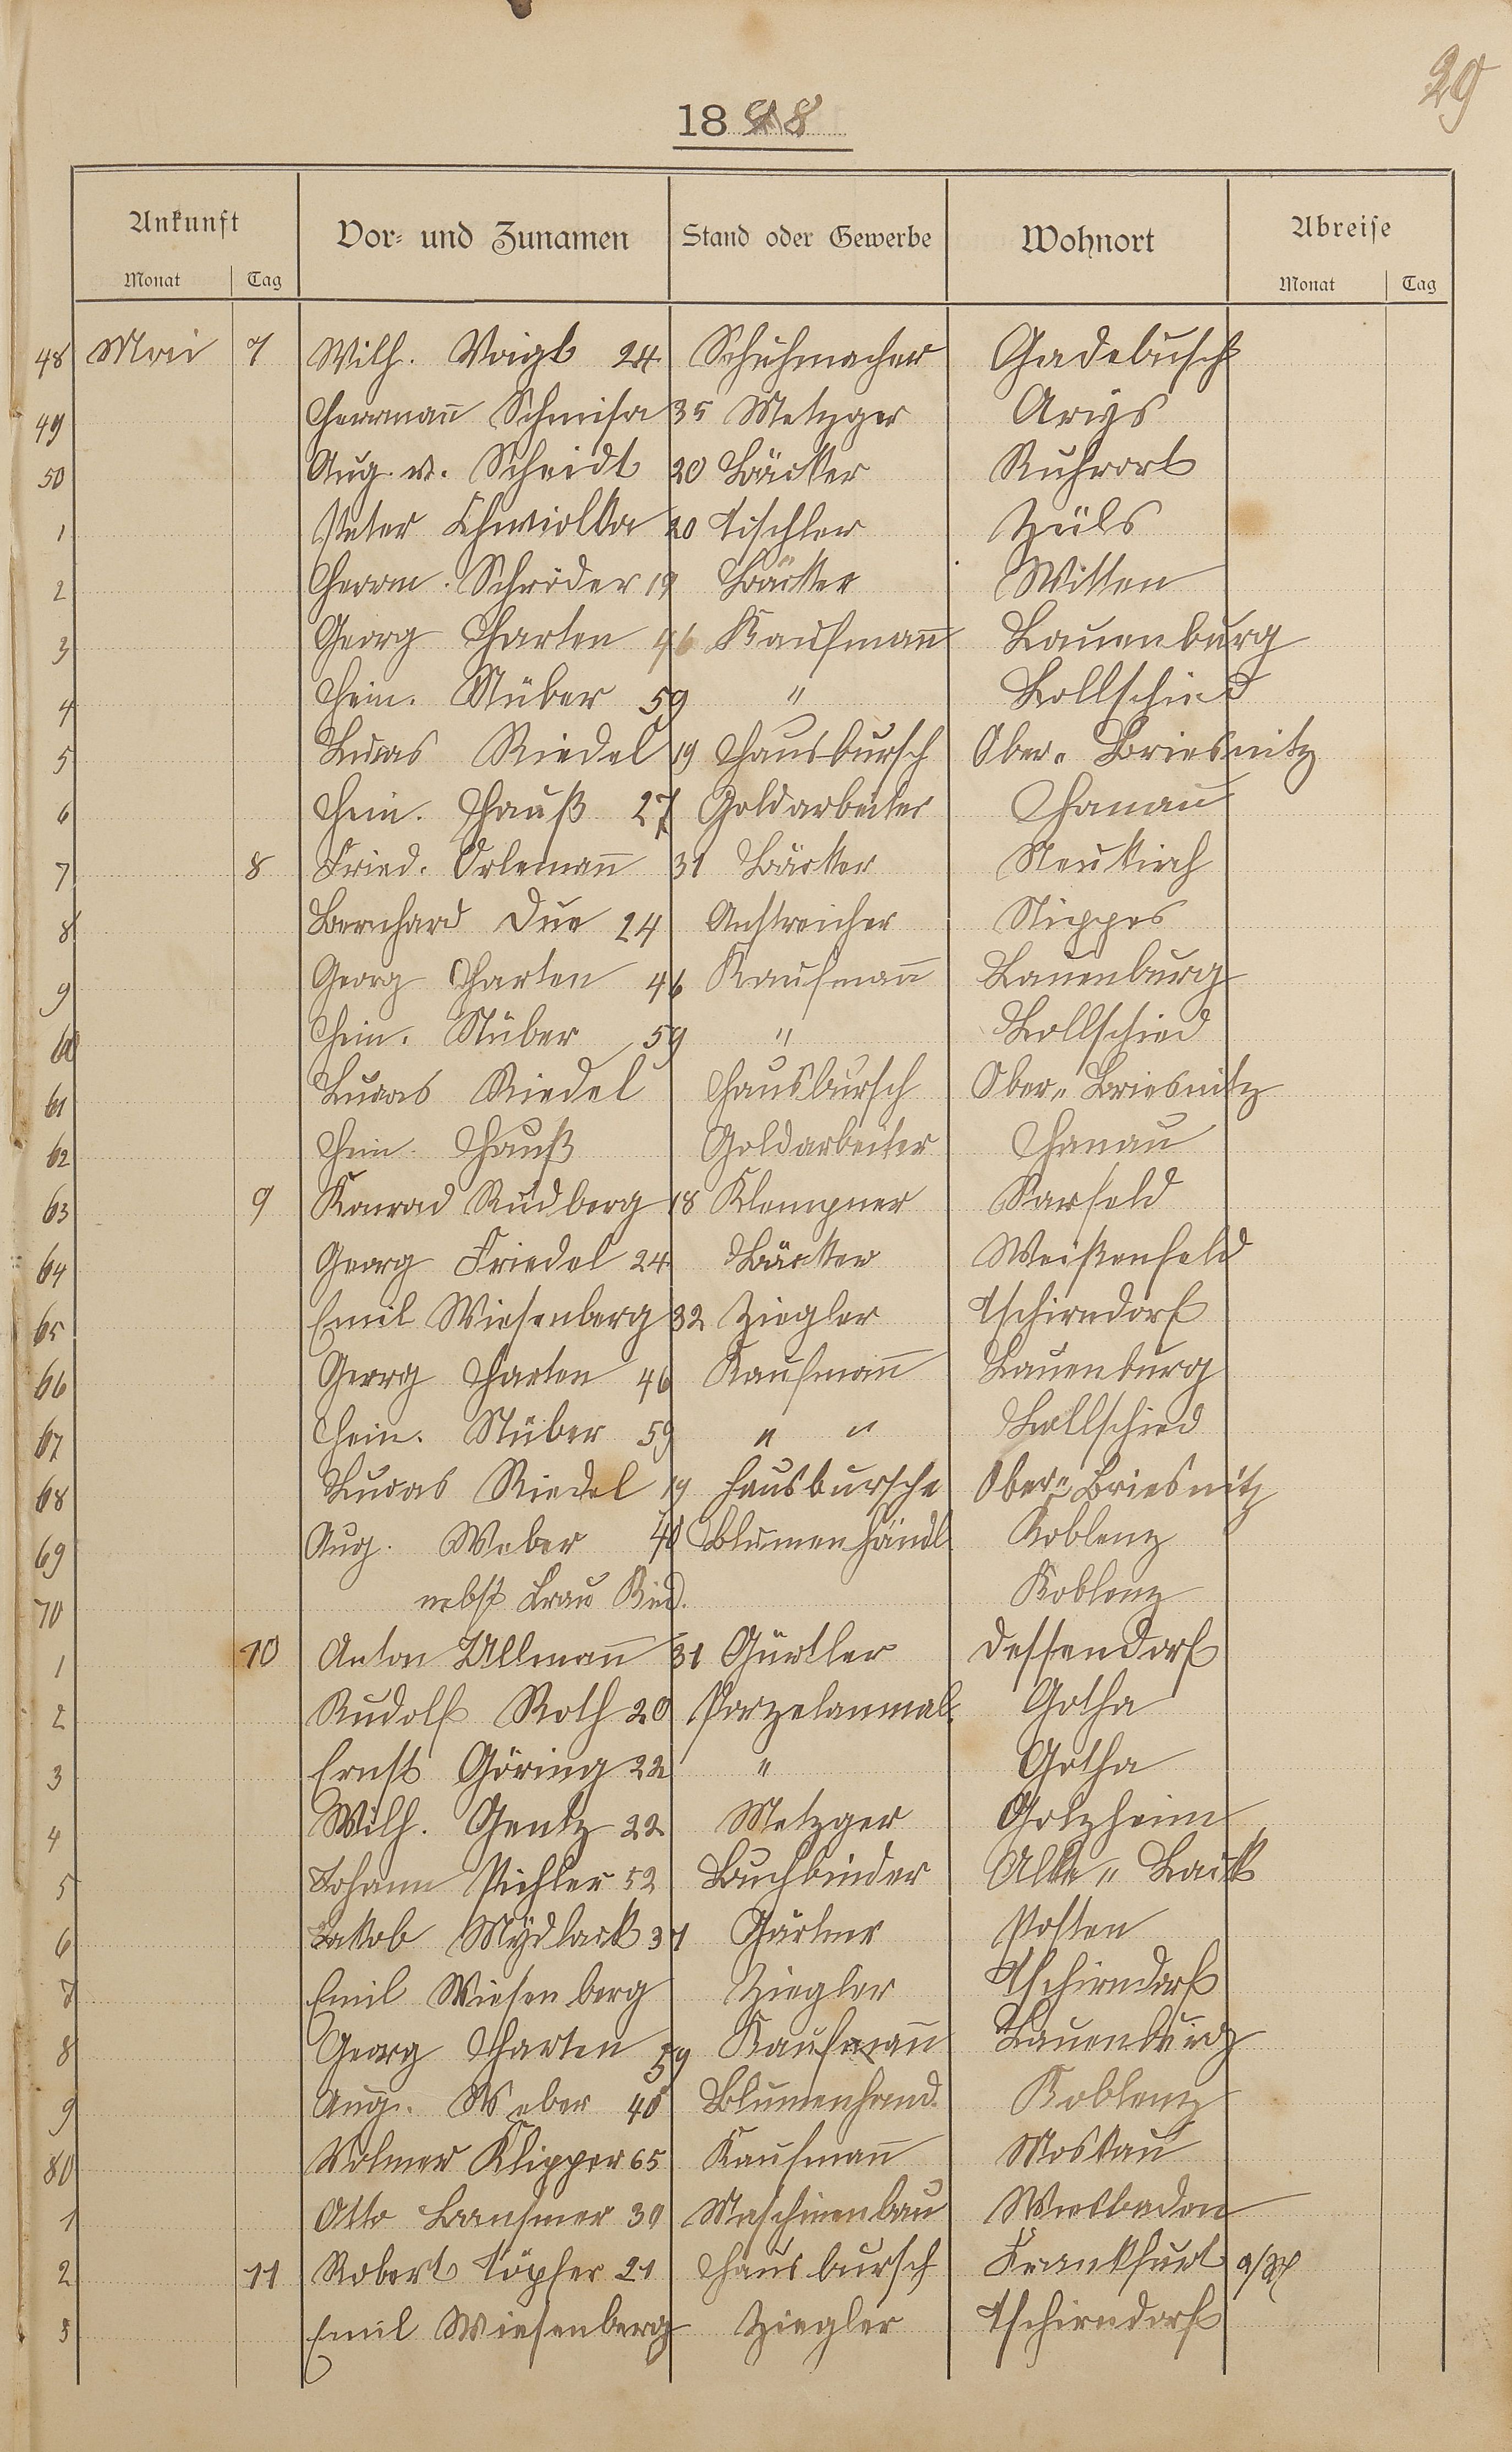 29
1898
Ankunft Vor- und Zunamen Stand oder Gewerbe Wohnort Abreise
Monat Tag Monat Tag
48 Mai 7 Wilh. Voigt 24 Schuhmacher Gadebusch
49 Herrmann 35 Metzger Arÿs
50 Aug. v. Scheidt 20 Bäcker Ruhrort
1 Peter 20 Tischler Zülz
2 Herm. Schröder 19 Bäcker Witten
3 Georg Harten 46 Kaufmann Lauenburg
4 Hein. Stüber 59 " Bollschied
5 Lucas Riedel 19 Hausbursch Ober-Briesnitz
6 Hein. Hauß 27 Goldarbeiter Hanau
7 8 Fried. Orlemann 31 Bäcker Neukirch
8 Bernhard Due 24 Anstreicher Nippes
9 Georg Harten 46 Kaufmann Lauenburg
60 Hein. Stüber 59 " Bollschied
61 Lucas Riedel Hausbursch Ober-Briesnitz
62 Hein. Hauß Goldarbeiter Hanau
63 9 Konrad Rudberg 18 Klempner
64 Georg Friedel 24 Bäcker Weißenfeld
65 Emil Wiesenberg 32 Ziegler Tschirndorf
66 Georg Harten 46 Kaufmann Lauenburg
67 Hein. Stüber 59 " " Bollschied
68 Lucas Riedel 19 Hausbursche Ober-Briesnitz
69 Aug. Weber 40 Blumenhändl. Koblenz
70 nebst Frau Kind. Koblenz
1 10 Anton Ullmann 31 Gürtler Dessendorf
2 Rudolf Roth 20 Porzelanmal. Gotha
3 Ernst Göring 22 " Gotha
4 Wilh. Gentz 22 Metzger Golzheim
5 Johann Pichler 52 Buchbinder Alte-Lack
6 Jakob Mÿdlack 31 Gärtner Posten
7 Emil Wiesenberg Ziegler Tschirndorf
8 Georg Harten 59 Kaufmann Lauenburg
9 Aug. Weber 40 Blumenhand. Koblenz
80 Volmer Klipper 65 Kaufmann Moskau
1 Otto 30 Maschinenbau Wiesbaden
2 11 Robert Töpfer 21 Hausbursch Frankfurt a/M
3 Emil Wiesenberg Ziegler Tschirndorf